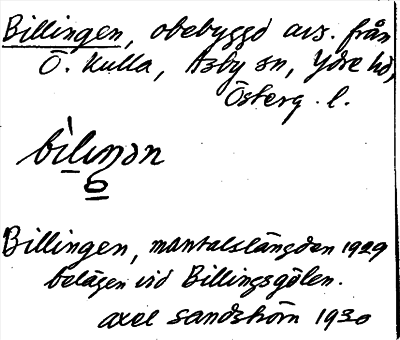 Billingen, obebyggd avs. från
Ö. Kulla, Asby sn, Ydre hd,
Österg. l.
bìlıŋən
6
Billingen, mantalslängden 1929
belägen vid Billingsgölen.
Axel Sandström 1930